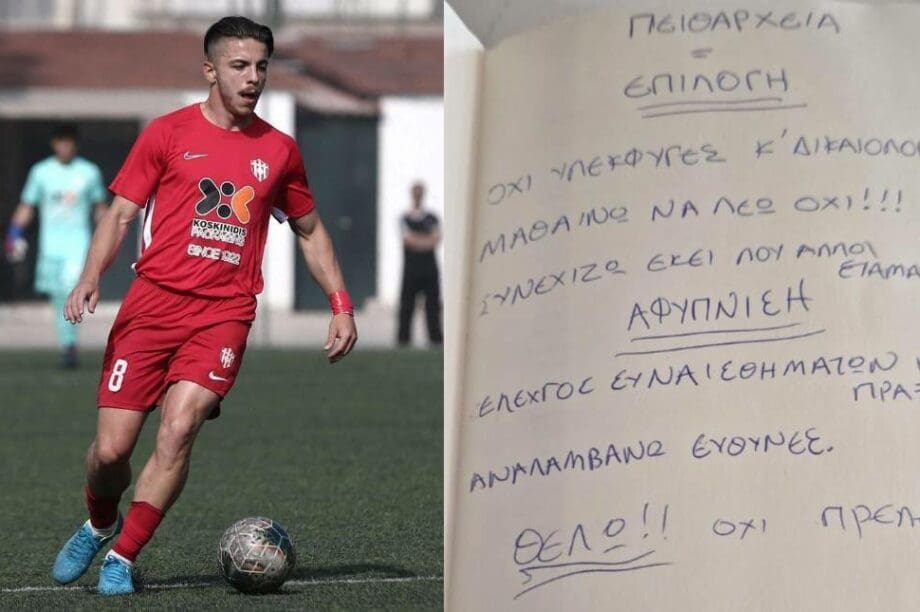 KOSKINIDIS
SINCE 1922
8
ΠΕΙΘΑΡΧΕΙΑ
=
ΕΠΙΛΟΓΗ
ΟΧΙ ΥΠΕΚΦΥΓΕΣ Κ' ΔΙΚΑΙΟΛΟ
ΜΑΘΑΙΝΩ ΝΑ ΛΕΩ ΟΧΙ!!!
ΣΥΝΕΧΙΖΩ ΕΚΕΙ ΠΟΥ ΑΛΛΟΙ
ΣΤΑΜΑ
ΑΦΥΠΝΙΣΗ
ΕΛΕΧΓΟΣ ΣΥΝΑΙΣΘΗΜΑΤΩΝ
ΠΡΑΞ
ΑΝΑΛΑΜΒΑΝΩ ΕΥΘΥΝΕΣ.
ΘΕΛΩ!! ΟΧΙ ΠΡΕΠ